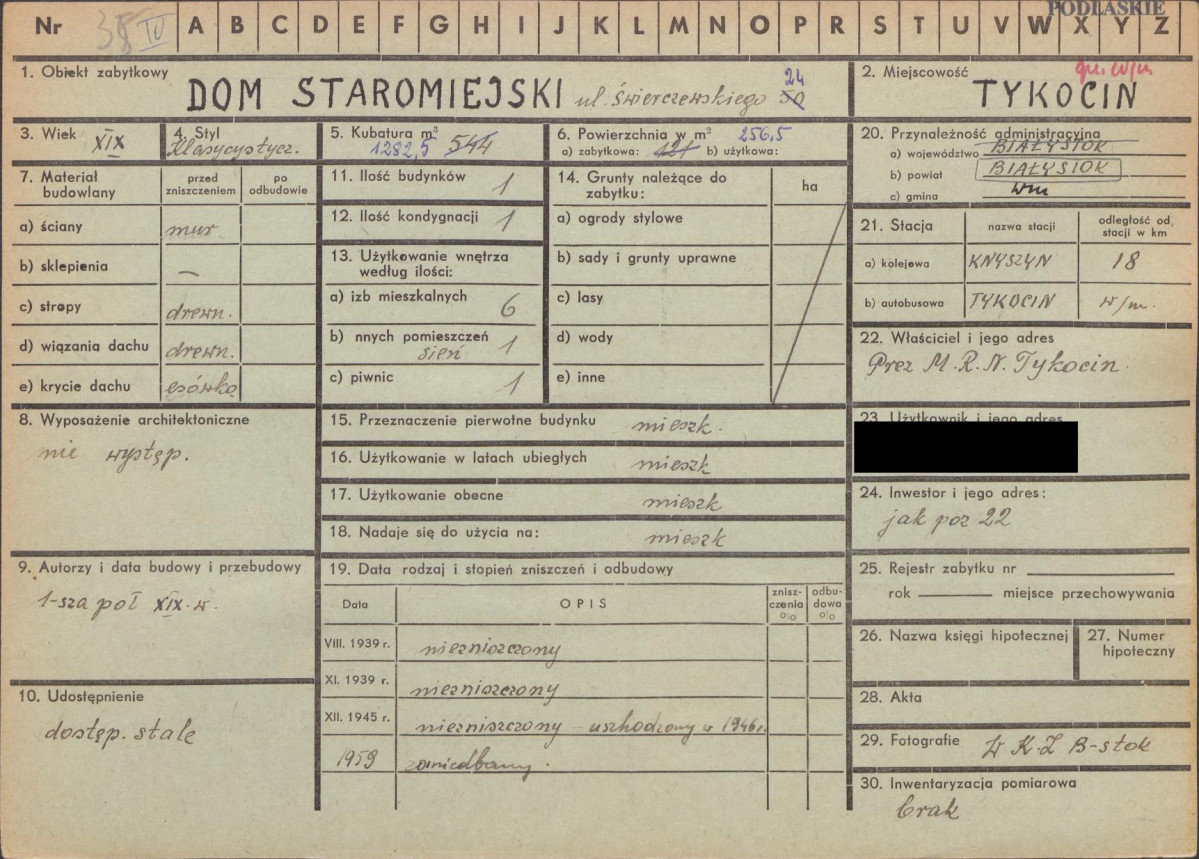 PODLASKIE
Nr 38 IV A B C D E F G H I J K L M N O P R S T U V W X Y Z
1. Obiekt zabytkowy
DOM STAROMIEJSKI ul. Świerczewskiego 50 24
2. Miejscowość
TYKOCIN
3. Wiek XIX
4. Styl Klasycystycz.
5. Kubatura m³
1282,5 544
6. Powierzchnia w m² 256,5
a) zabytkowa: 121 b) użytkowa:
7. Materiał budowlany
przed zniszczeniem
po odbudowie
a) ściany mur.
b) sklepienia —
c) stropy drewn.
d) wiązania dachu drewn.
e) krycie dachu esówką
8. Wyposażenie architektoniczne
nie występ.
9. Autorzy i data budowy i przebudowy
1-sza poł XIX. w.
10. Udostępnienie
dostęp. stale
11. Ilość budynków 1
12. Ilość kondygnacji 1
13. Użytkowanie wnętrza
według ilości:
a) izb mieszkalnych 6
b) nnych pomieszczeń
sień 1
c) piwnic 1
14. Grunty należące do
zabytku:
ha
a) ogrody stylowe
b) sady i grunty uprawne
c) lasy
d) wody
e) inne
15. Przeznaczenie pierwotne budynku mieszk.
16. Użytkowanie w latach ubiegłych mieszk
17. Użytkowanie obecne mieszk
18. Nadaje się do użycia na: mieszk
19. Data rodzaj i stopień zniszczeń i odbudowy
Data
OPIS
znisz-
czenia
%
odbu-
dowa
%
VIII. 1939 r. niezniszczony
XI. 1939 r. niezniszczony
XII. 1945 r. niezniszczony – uszkodzony w 1946 r.
1959 zaniedbany.
20. Przynależność administracyjna
a) województwo BIAŁYSTOK
b) powiat BIAŁYSTOK
c) gmina w/m
21. Stacja
nazwa stacji
odległość od
stacji w km
a) kolejowa KNYSZYN 18
b) autobusowa TYKOCIN w/m.
22. Właściciel i jego adres
Prez M.R.N. Tykocin.
23. Użytkownik i jego adres
24. Inwestor i jego adres:
jak poz 22
25. Rejestr zabytku nr
rok miejsce przechowywania
26. Nazwa księgi hipotecznej
27. Numer
hipoteczny
28. Akta
29. Fotografie W K-Z B-stok
30. Inwentaryzacja pomiarowa
brak